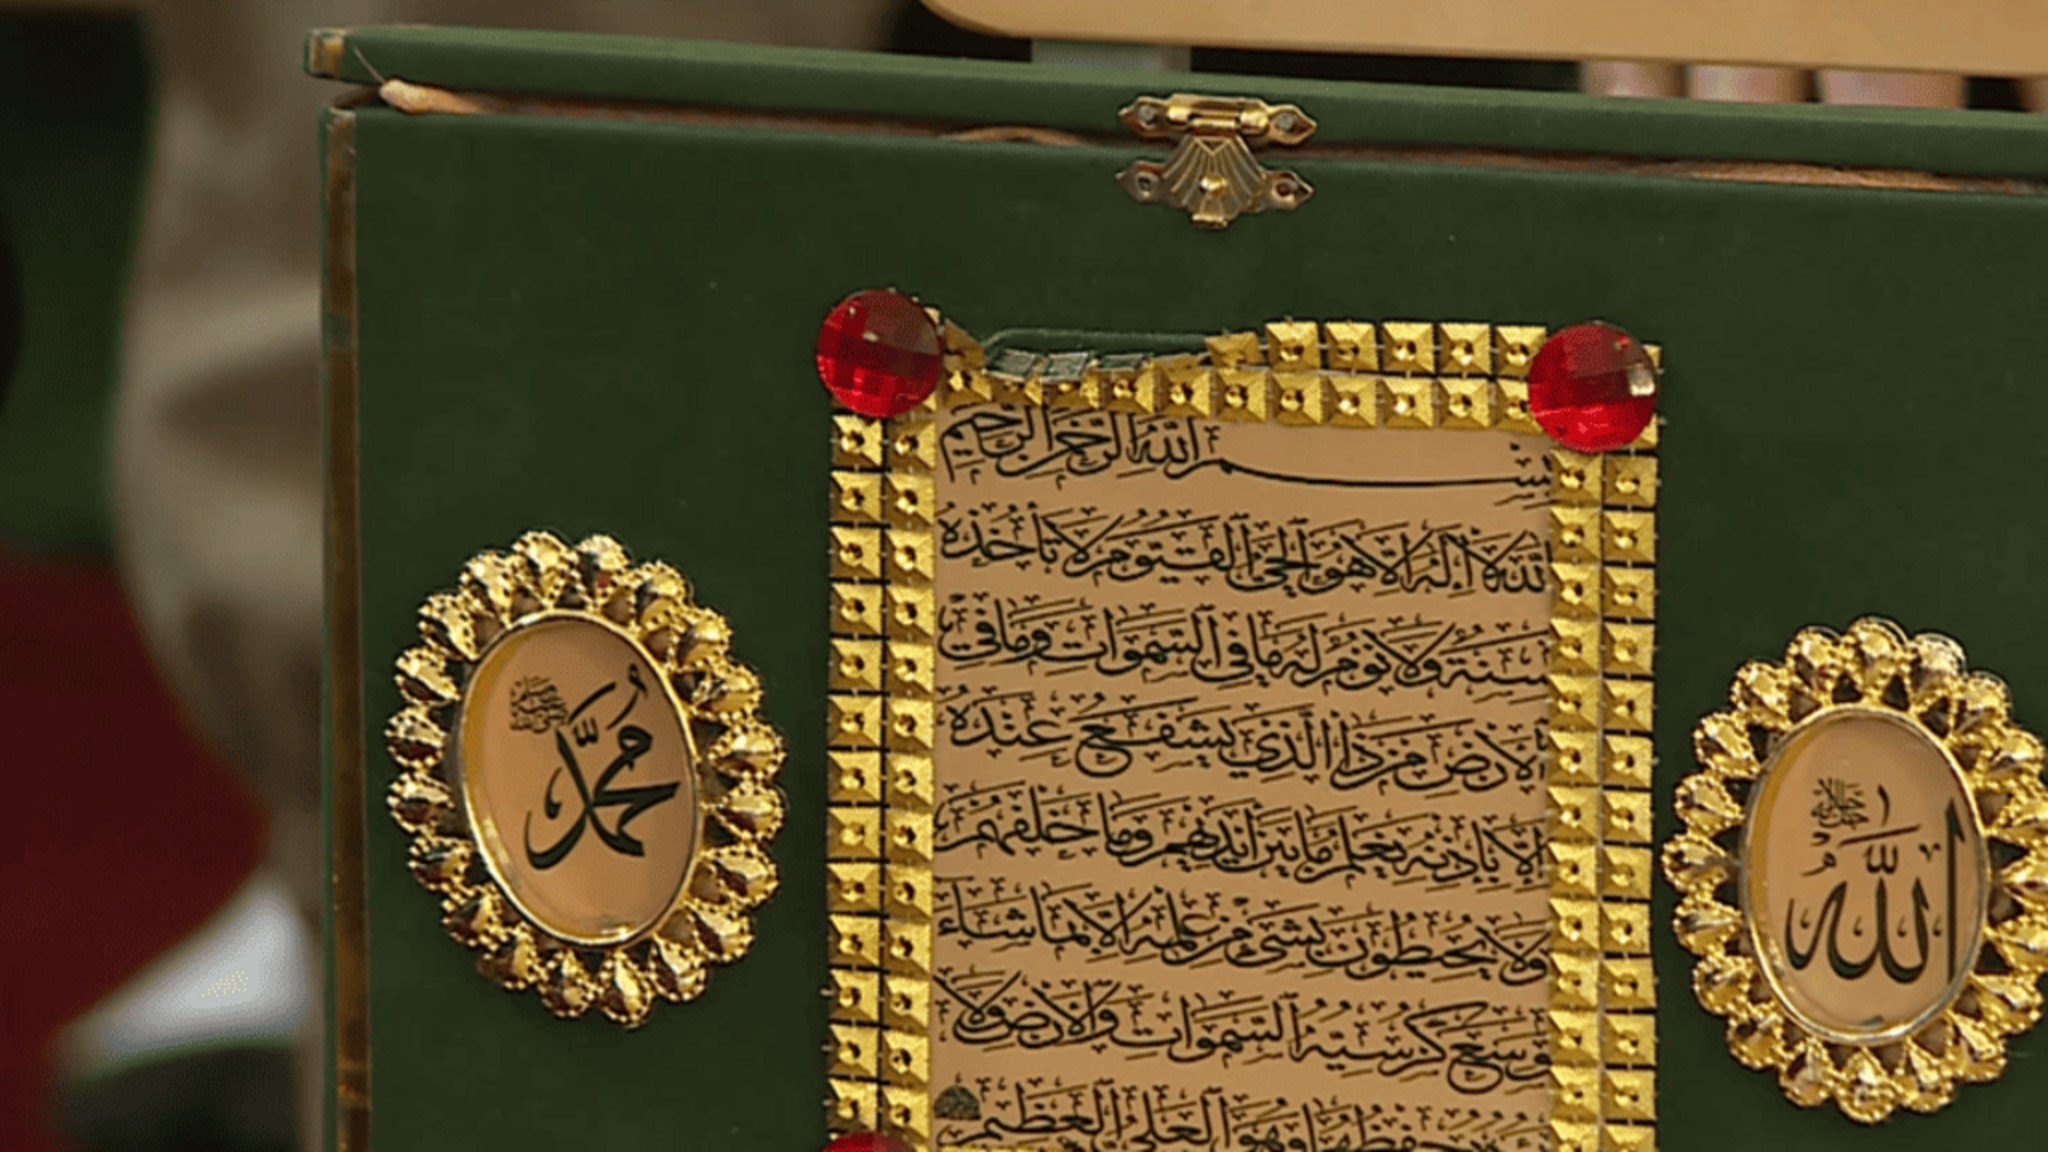 بِسْمِ اللهِ الرَّحْمٰنِ الرَّحِيمِ
اَللهُ لَا اِلٰهَ اِلَّا هُوَ الْحَيُّ الْقَيُّومُ لَا تَأْخُذُهُ
سِنَةٌ وَلَا نَوْمٌ لَهُ مَا فِي السَّمٰوَاتِ وَمَا فِي
الْاَرْضِ مَنْ ذَا الَّذِي يَشْفَعُ عِنْدَهُ
اِلَّا بِاِذْنِهِ يَعْلَمُ مَا بَيْنَ اَيْدِيهِمْ وَمَا خَلْفَهُمْ
وَلَا يُحِيطُونَ بِشَيْءٍ مِنْ عِلْمِهِ اِلَّا بِمَا شَاءَ
وَسِعَ كُرْسِيُّهُ السَّمٰوَاتِ وَالْاَرْضَ وَلَا
حِفْظُهُمَا وَهُوَ الْعَلِيُّ الْعَظِيمُ
اللهُ
جل جلاله
مُحَمَّد